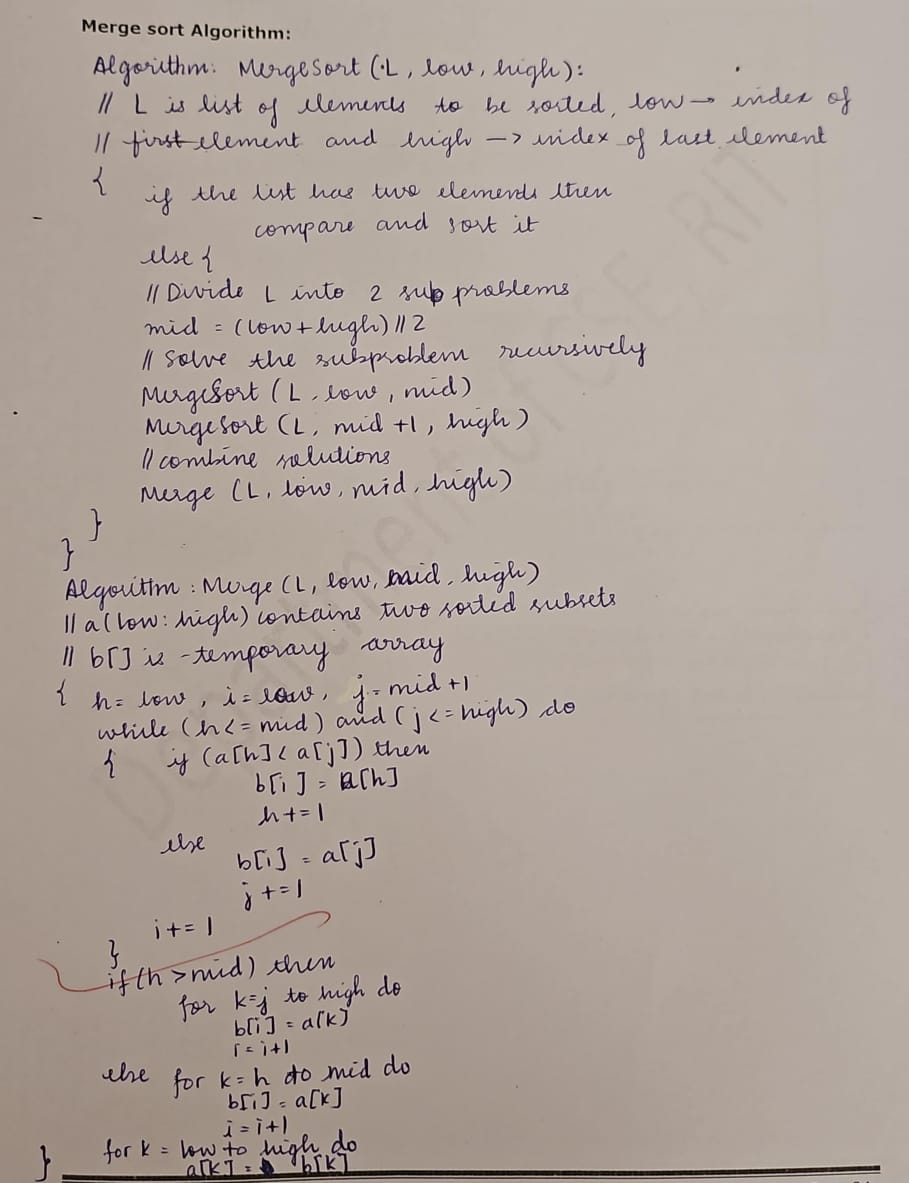 Merge sort Algorithm:
Algorithm: MergeSort (L, low, high):
// L is list of elements to be sorted, low → index of
// first element and high → index of last element
{ if the list has two elements then
compare and sort it
else {
// Divide L into 2 sub problems
mid = (low+high)//2
// Solve the subproblem recursively
MergeSort (L, low, mid)
MergeSort (L, mid +1, high)
// combine solutions
Merge (L, low, mid, high)
}
}
Algorithm : Merge (L, low, mid, high)
// a(low: high) contains two sorted subsets
// b[] is temporary array
{ h= low, i=low, j=mid+1
while (h<=mid) and (j<=high) do
{ if (a[h]<a[j]) then
b[i] = a[h]
h+=1
else
b[i] = a[j]
j+=1
i+=1
}
if(h>mid) then
for k=j to high do
b[i] = a[k]
i=i+1
else for k=h to mid do
b[i]=a[k]
i=i+1
for k = low to high do
} a[k] = b[k]
Department of CSE, RIT